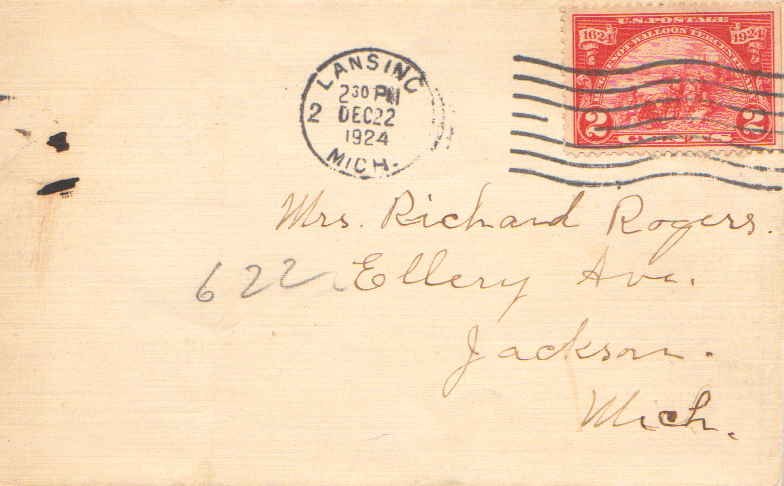 U.S. POSTAGE
1624 1924
2 CENTS 2
LANSING
2 30 PM
2 DEC 22
1924
MICH.
Mrs. Richard Rogers.
622 Ellery Ave.
Jackson.
Mich.